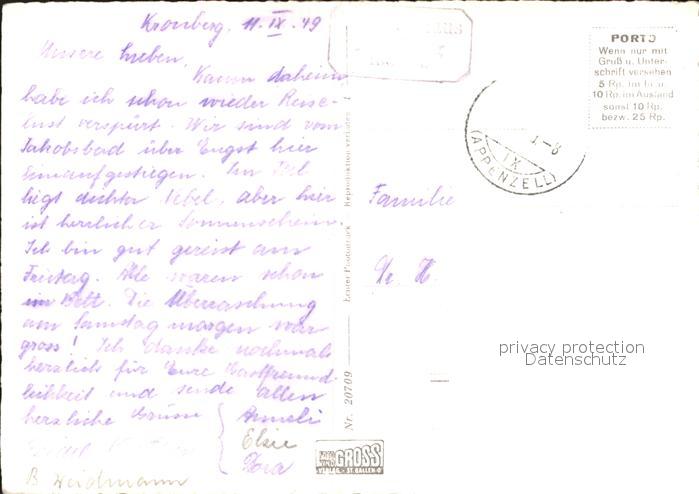 Kronberg, 11. IX. 49
Unsere Lieben,
Kaum daheim
habe ich schon wieder Reise-
lust verspürt. Wir sind vom
Jakobsbad über Eugst hier
hinaufgestiegen. Im Tal
liegt dichter Nebel, aber hier
ist herrlicher Sonnenschein.
Ich bin gut gereist am
Freitag. Alle waren schon
im Bett. Die Überraschung
am Samstag morgen war
gross! Ich danke nochmals
herzlich für Eure Gastfreund-
lichkeit und sende allen
herzliche Grüsse
Anneli
Elsie
Dora
B Weidmann
Nr. 20709
Echter Photodruck
Reproduktion verboten
FOTO
GROSS
VERLAG - ST. GALLEN
PORTO
Wenn nur mit
Gruß u. Unter-
schrift versehen
5 Rp. im In- u.
10 Rp. im Ausland
sonst 10 Rp.
bezw. 25 Rp.
IX
(APPENZELL)
Familie
privacy protection
Datenschutz